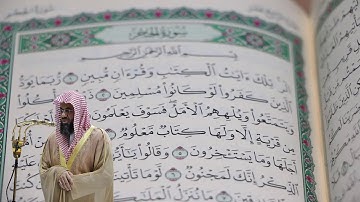 سُورَةُ الحِجْرِ
بِسْمِ ٱللَّهِ ٱلرَّحْمَٰنِ ٱلرَّحِيمِ
الٓر تِلْكَ ءَايَٰتُ ٱلْكِتَٰبِ وَقُرْءَانٍ مُّبِينٍ ١ رُّبَمَا يَوَدُّ
ٱلَّذِينَ كَفَرُوا۟ لَوْ كَانُوا۟ مُسْلِمِينَ ٢ ذَرْهُمْ يَأْكُلُوا۟
وَيَتَمَتَّعُوا۟ وَيُلْهِهِمُ ٱلْأَمَلُ فَسَوْفَ يَعْلَمُونَ ٣
مِن قَرْيَةٍ إِلَّا وَلَهَا كِتَابٌ مَّعْلُومٌ ٤
أَجَلَهَا وَمَا يَسْتَـْٔخِرُونَ ٥ وَقَالُوا۟ يَٰٓأَيُّهَا
ٱلذِّكْرُ إِنَّكَ لَمَجْنُونٌ ٦ لَّوْ مَا تَأْتِينَا
مَا نُنَزِّلُ ٱلْمَلَٰٓئِكَةَ